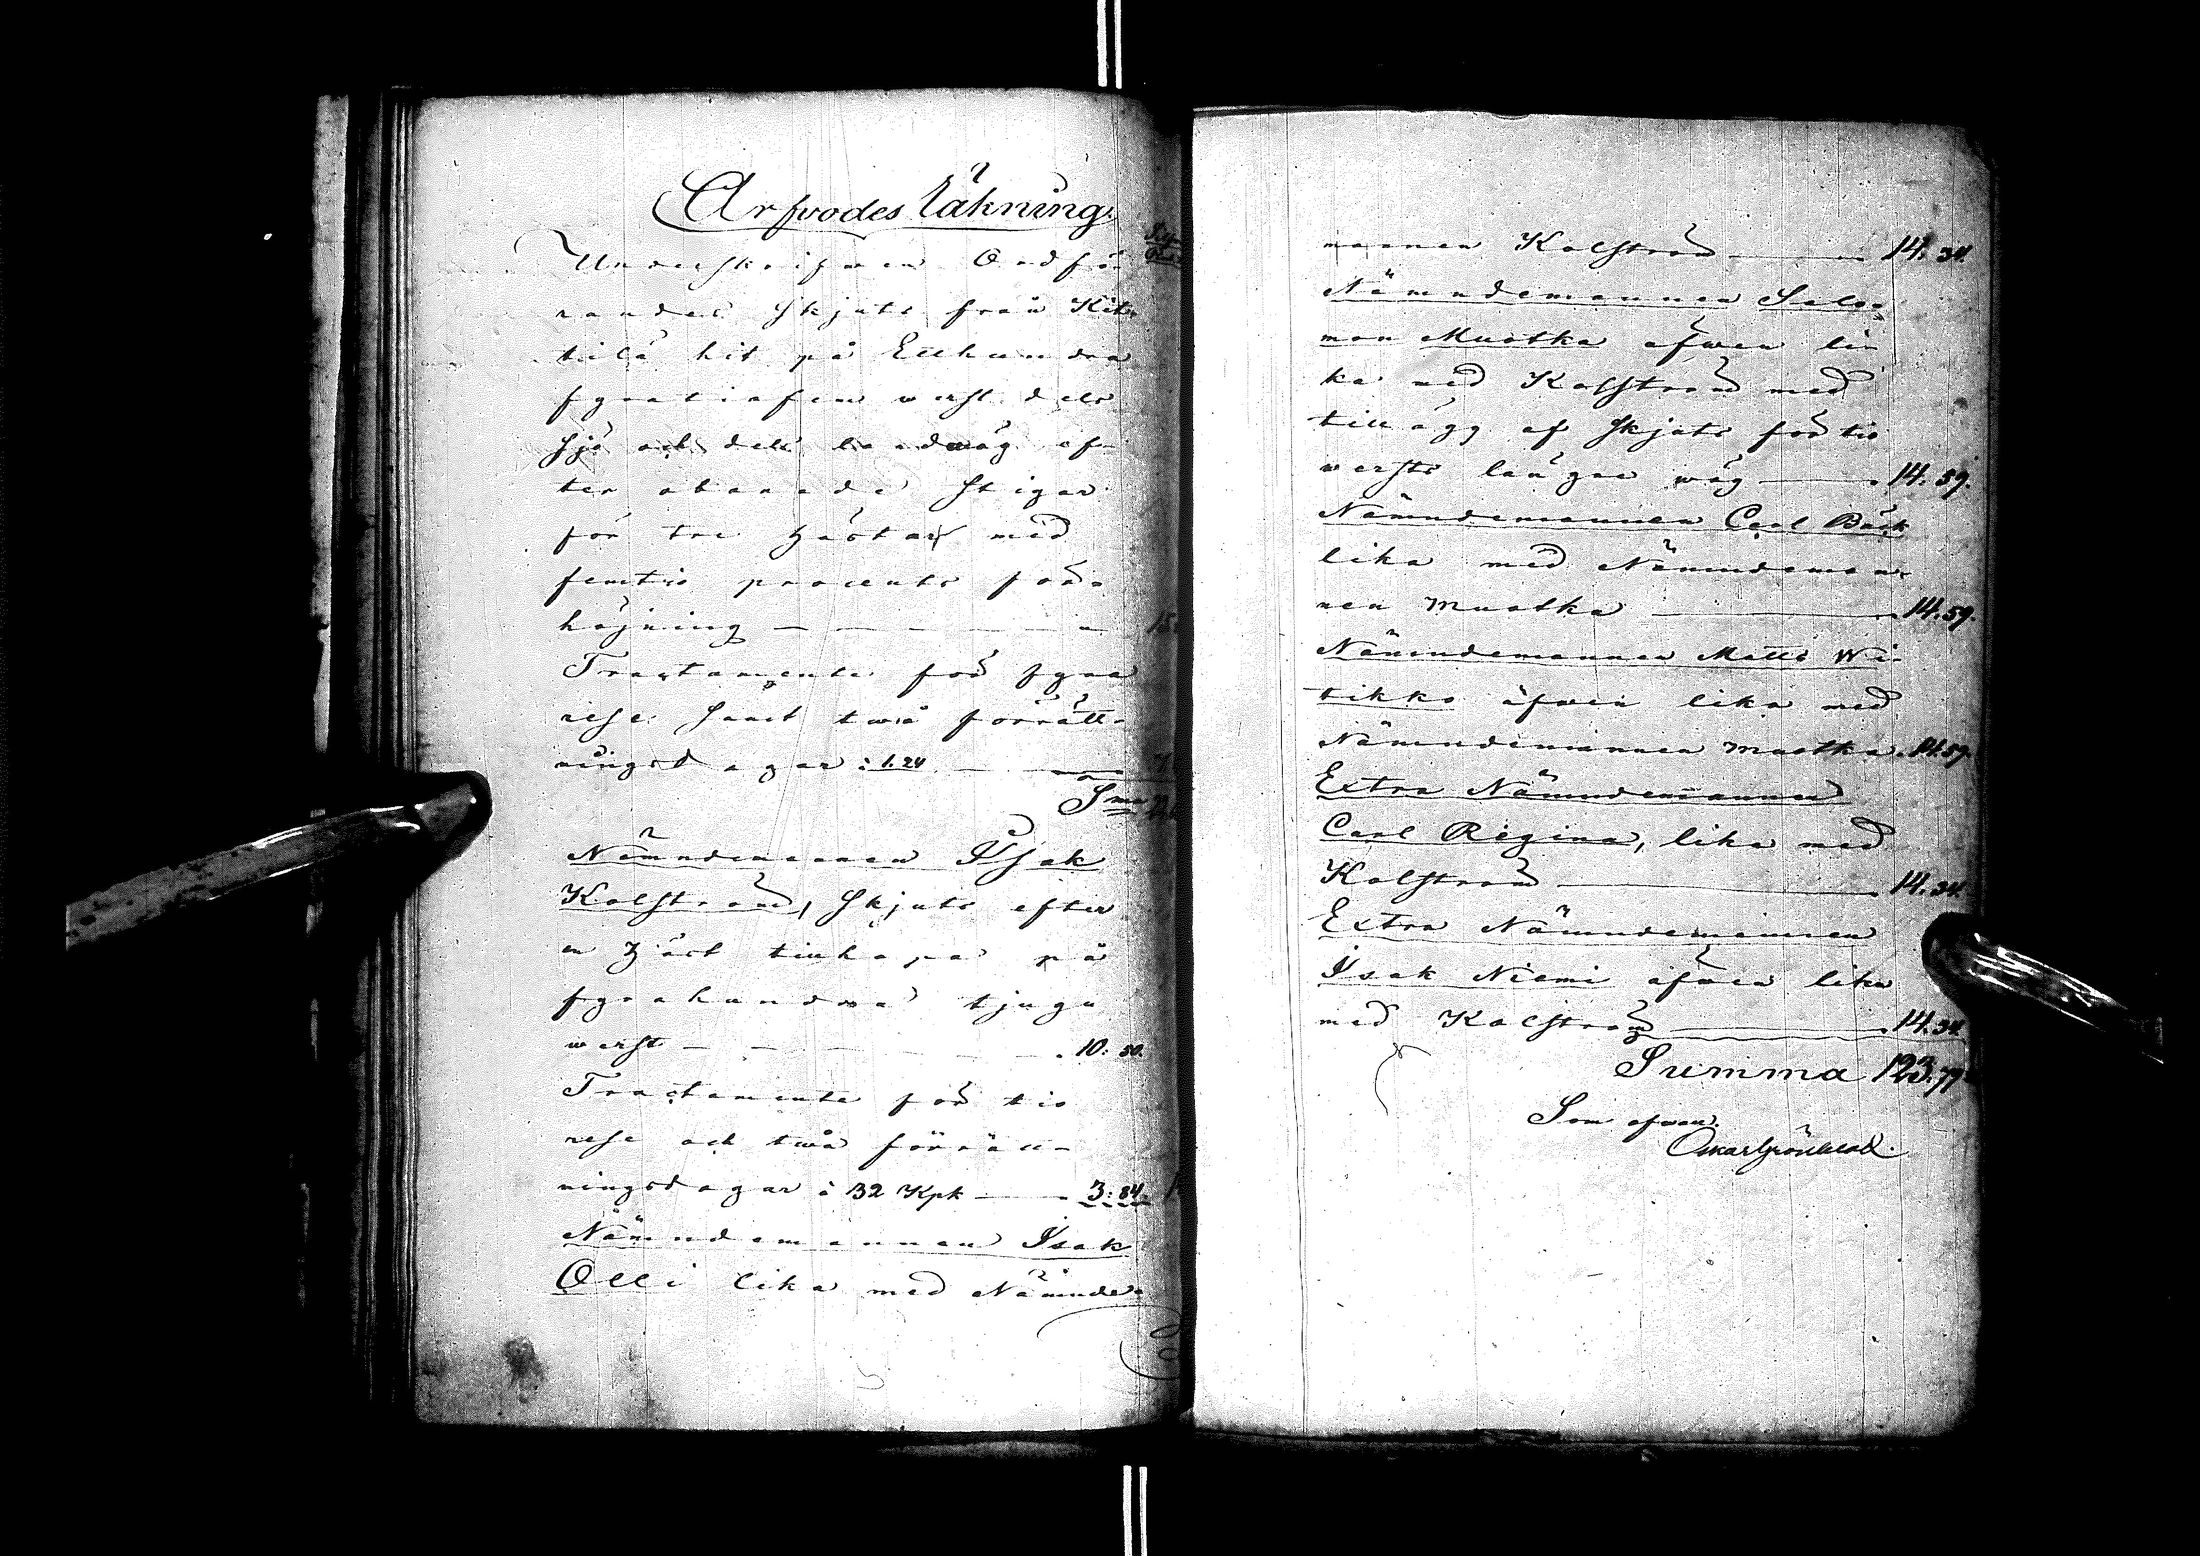 Arfvodes Räkning.
Underskrifwen Ordfö-
randes Skjuts från Kit-
tilä hit på Etthundra
fyratiofem werst dels
Sjö och dels landwäg ef-
ter obanade Stigar
för tre Hästar med
femtio procents för-
höjning
Tractamente för fyra
rese samt twå förrätt-
ningsdagar: 1.24
Sma
Nämndemannen Isak
Kolström, Skjuts efter
en Häst tillhopa på
fyrahundra tjugu
werst 10: 50.
Tractamente för tio
rese och twå förrätt-
ningsdagar à 32 Kpk 3: 84.
Nämndemannen Isak
Olli lika med Nämnde-
mannen Kolström 14. 34.
Nämndemannen Salo-
mon Muotka äfwen li-
ka med Kolström med
tillägg af Skjuts för tio
wersts längre wäg 14. 59.
Nämndemannen Carl Bäck
lika med Nämndeman-
nen Muotka 14. 59.
Nämndemannen Matts Wi-
tikko äfwen lika med
Nämndemannen Muotka. 14. 59.
Extra Nämndemannen
Carl Regina, lika med
Kolström 14. 34.
Extra Nämndemannen
Isak Niemi äfwen lika
med Kolström 14. 34.
Summa 123. 79
Som ofwan.
Oskar Grönblad.